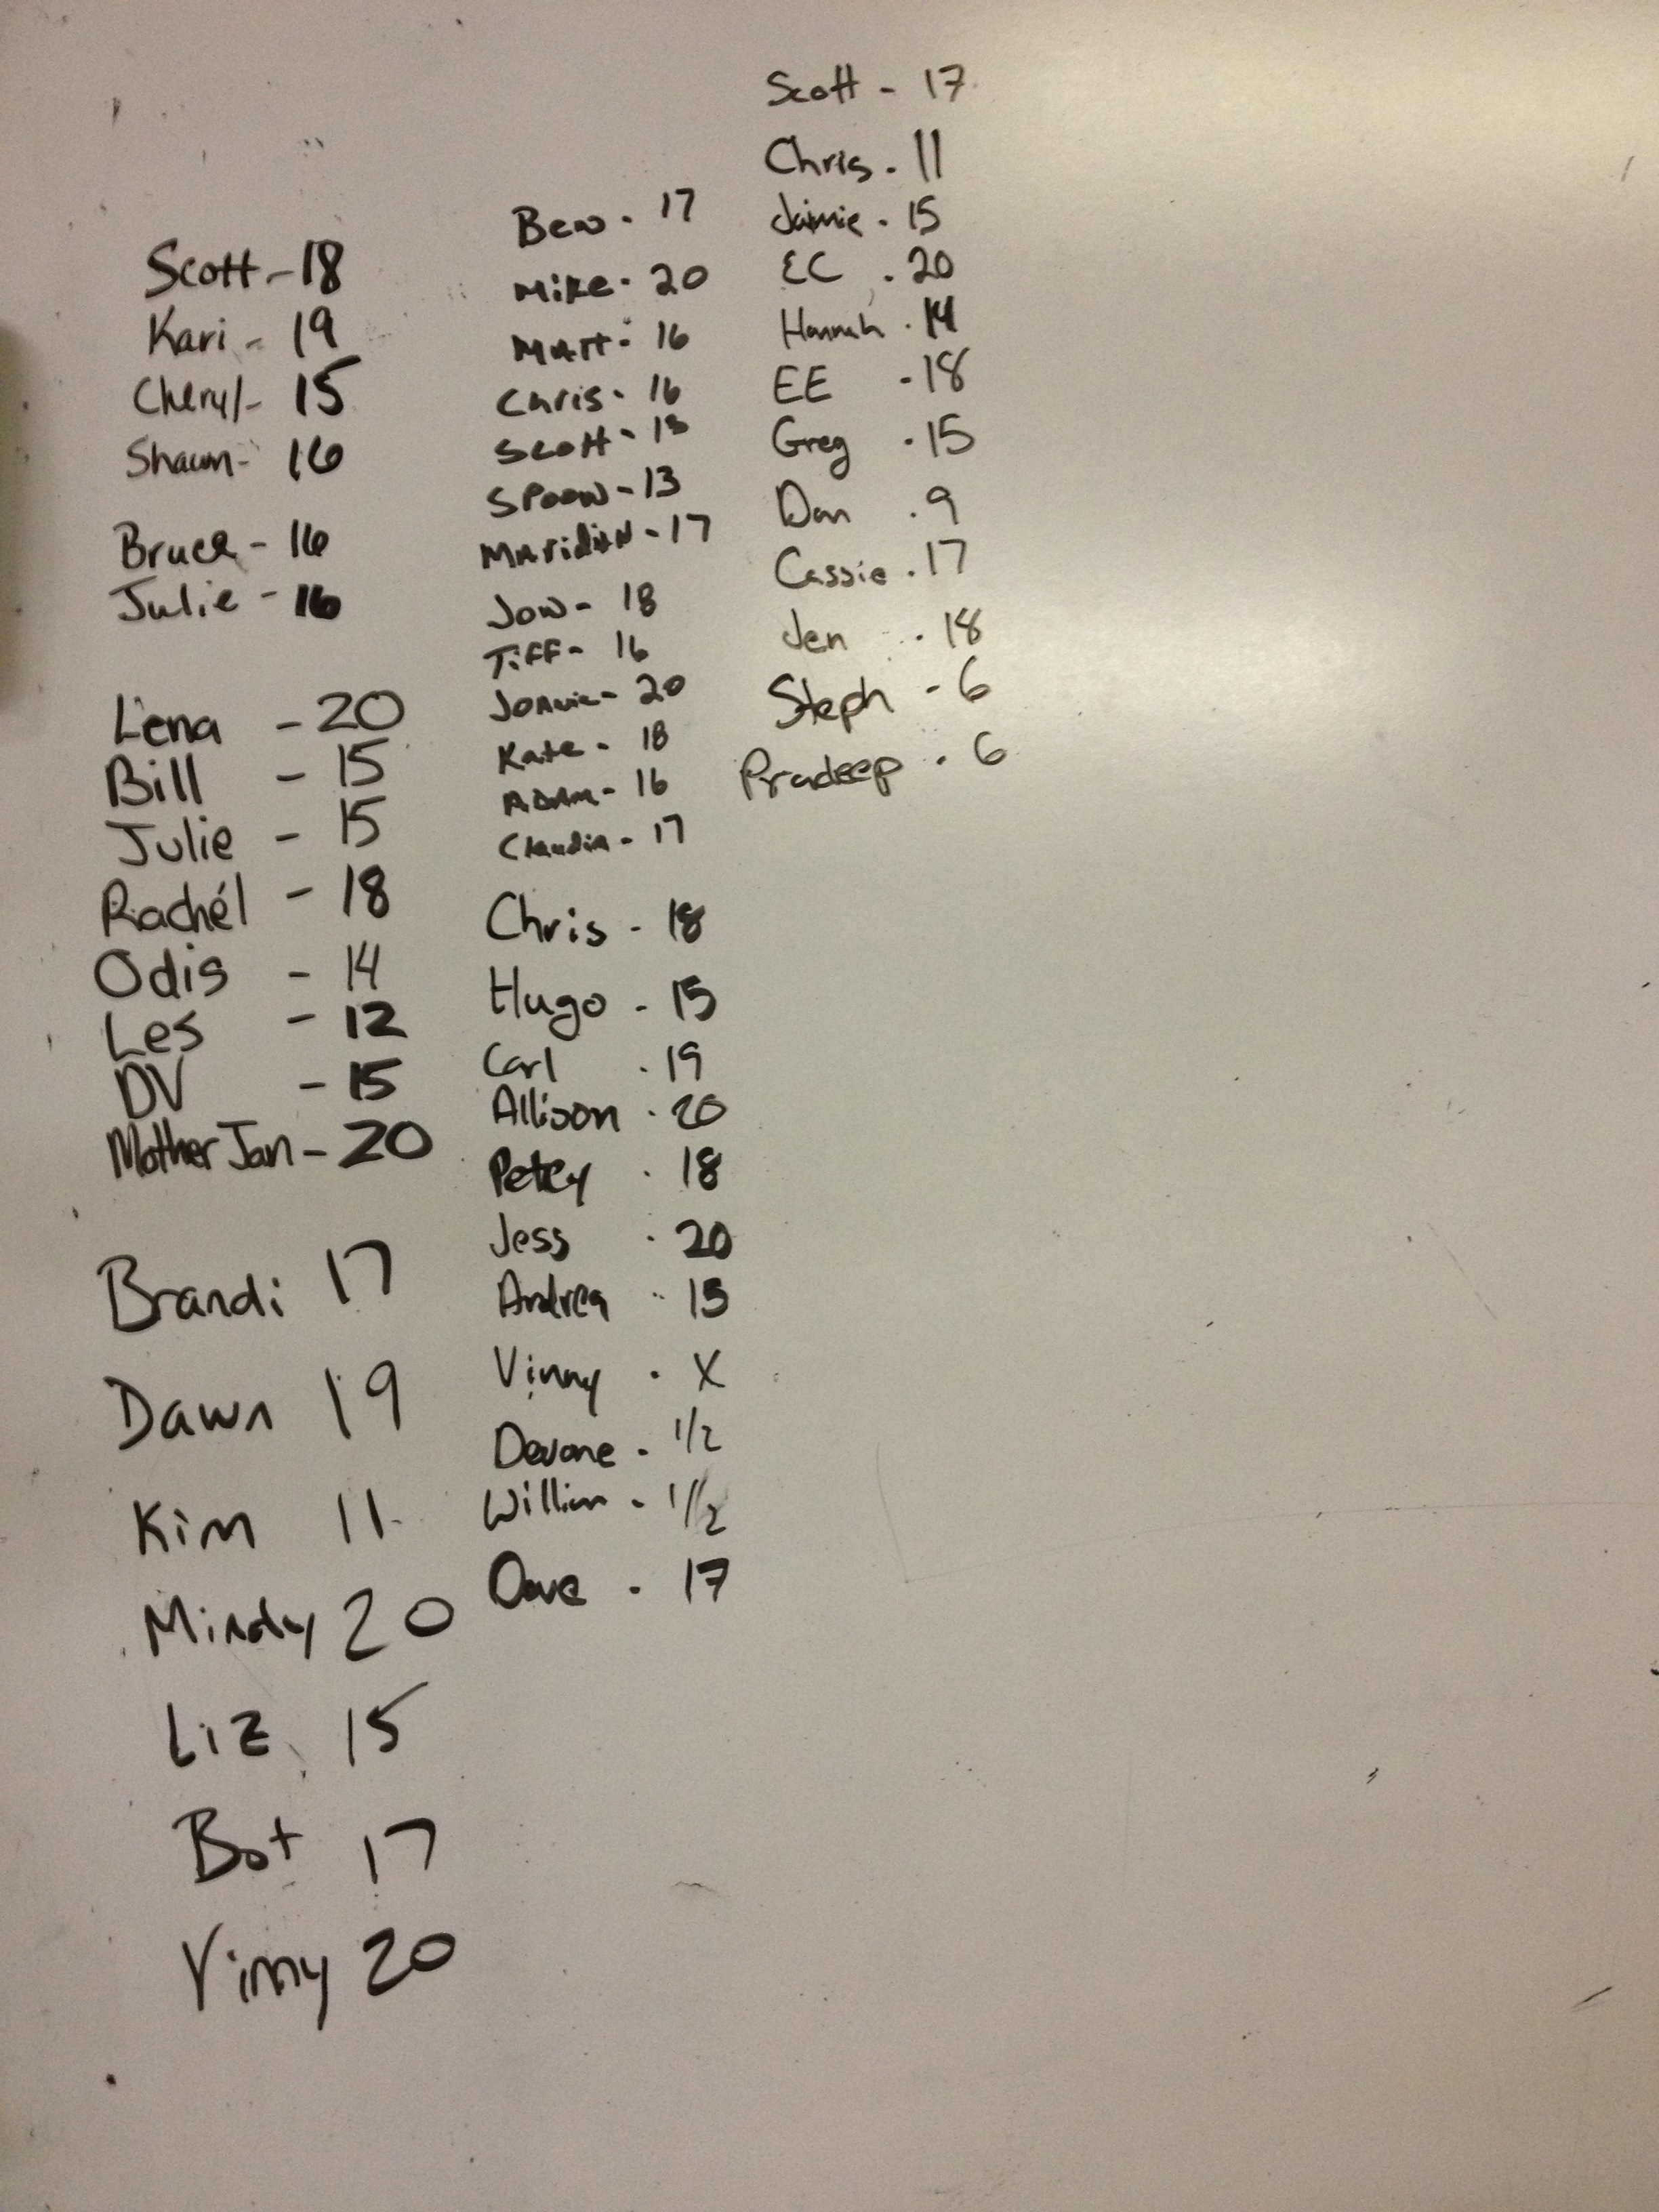 Scott - 18
Kari - 19
Cheryl - 15
Shawn - 16
Bruce - 16
Julie - 16
Lena - 20
Bill - 15
Julie - 15
Rachél - 18
Odis - 14
Les - 12
DV - 15
Mother Jan - 20
Brandi 17
Dawn 19
Kim 11
Mindy 20
Liz 15
Bot 17
Vinny 20
Ben - 17
Mike - 20
Matt - 16
Chris - 16
Scott -
Spoon - 13
Maridith - 17
Jon - 18
Tiff - 16
- 20
Kate - 18
Adam - 16
Claudia - 17
Chris - 18
Hugo - 15
Carl - 19
Allison - 20
Petey - 18
Jess - 20
Andrea - 15
Vinny - X
Devone - 1/2
Willim - 1/2
Dave - 17
Scott - 17
Chris - 11
Jaimie - 15
EC - 20
Hannah - 14
EE - 18
Greg - 15
Dan - 9
Cassie - 17
Jen - 18
Steph - 6
Pradeep - 6